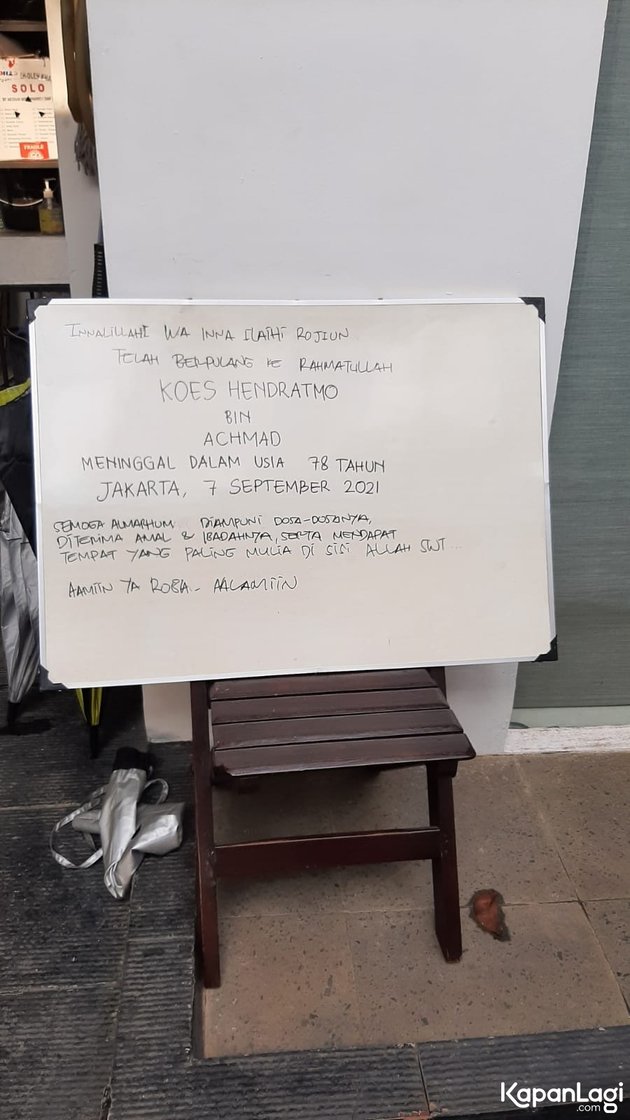 SOLO
FRAGILE
INNALILLAHI WA INNA ILAIHI ROJIUN
TELAH BERPULANG KE RAHMATULLAH
KOES HENDRATMO
BIN
ACHMAD
MENINGGAL DALAM USIA 78 TAHUN
JAKARTA, 7 SEPTEMBER 2021
SEMOGA ALMARHUM DIAMPUNI DOSA-DOSANYA,
DITERIMA AMAL & IBADAHNYA, SERTA MENDAPAT
TEMPAT YANG PALING MULIA DI SISI ALLAH SWT...
AAMIIN YA ROBBA - AALAMIIN
KapanLagi
.com